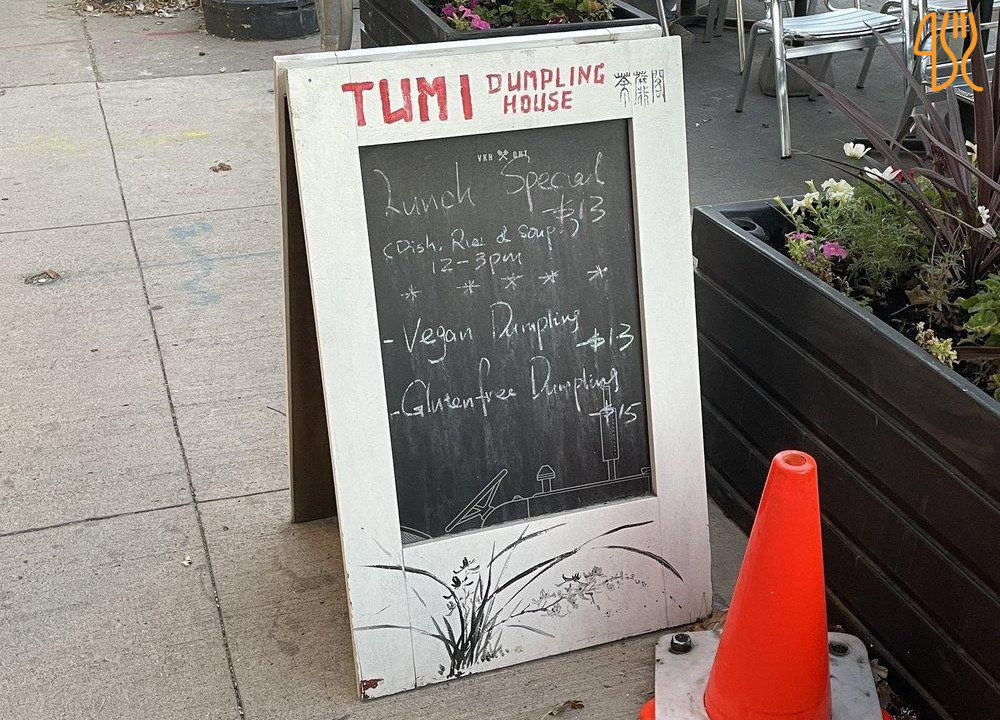 TUMI DUMPLING HOUSE
VKH OHT
Lunch Special
-$13
(Dish, Rice & soup)
12-3pm
* * * * *
- Vegan Dumpling
-$13
- Glutenfree Dumpling
-$15